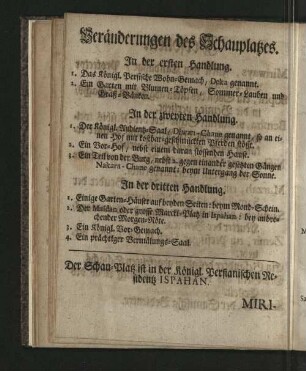 Veränderungen des Schauplatzes.
In der ersten Handlung.
1. Das Königl. Persische Wohn-Gemach, Deka genannt.
2. Ein Garten mit Blumen-Töpfen, Sommer-Lauben und
Graß-Bäncken.
In der zweyten Handlung.
1. Der Königl. Audientz-Saal, Divan-Chane genannt, so an ei-
nen Hof mit kostbar geschirrten Pferden stöst.
2. Ein Vor-Hof, nebst einem daran stossenden Hause.
3. Ein Teil von der Burg, nebst 2. gegen einander
Gängen
Nakara-Chane genannt; beym Untergang der Sonne.
In der dritten Handlung.
1. Einige Garten-Häuser auf beyden Seiten; beym Mond-Schein.
2. Der Maidan oder grosse Marckt-Platz in Ispahan; bey anbre-
chender Morgen-Röte.
3. Ein Königl. Vor-Gemach.
4. Ein prächtiger Vermählungs-Saal.
Der Schau-Platz ist in der Königl. Persianischen Re-
sidentz ISPAHAN.
MIRI-